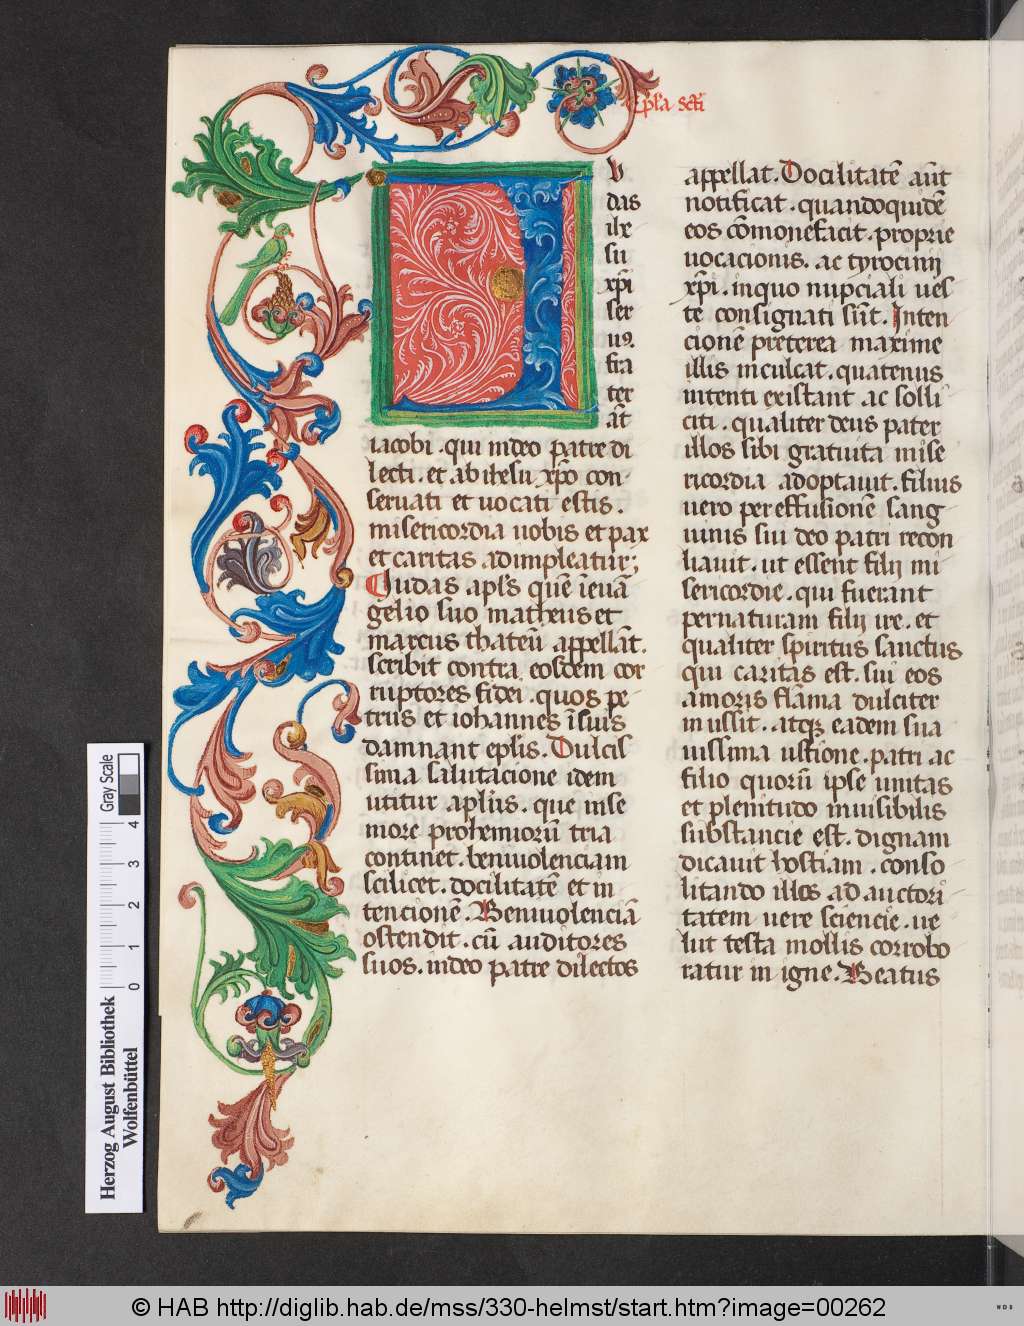 Ep̄la sc̄ti
U
das
ihe
su
xp̄i
ser
uꝰ.
fra
ter
āt
iacobi . qui in deo patre di
lecti . et ab ihesu xp̄o con-
seruati et uocati estis .
misericordia uobis et pax
et caritas adimpleatur;
Iudas apl̄s quē ī euā
gelio suo matheus et
marcus thateū appellāt.
scribit contra eosdem cor
ruptores fidei . quos pe
trus et iohannes ī suis
damnant ep̄lis. Dulcis
sima salutacione idem
utitur apl̄us . que in se
more prohemiorū tria
continet . beniuolenciam
scilicet . docilitatē et in
tencionē . Beniuolenciā
ostendit . cū auditores
suos . in deo patre dilectos
appellat . Docilitatē aūt
notificat . quandoquidē
eos cōmonefacit . proprie
uocacionis . ac tyrocinij
xp̄i . in quo nupciali ues
te consignati sūt . Inten
cionē preterea maxime
illis inculcat . quatenus
intenti existant ac solli
citi . qualiter deus pater
illos sibi gratuita mise
ricordia adoptauit . filius
uero per effusionē sang
uinis sui deo patri recon
liauit . ut essent filij mi
sericordie . qui fuerant
per naturam filij ire . et
qualiter spiritus sanctus
qui caritas est . sui eos
amoris flāma dulciter
inussit . atqꝫ eadem sua
uissima ustione . patri ac
filio quorū ipse unitas
et plenitudo inuisibilis
substancie est . dignam
dicauit hostiam . conso
litando illos ad auctori
tatem uere sciencie . ue
lut testa mollis corrobo
ratur in igne . Beatus
Herzog August Bibliothek
Wolfenbüttel
0 1 2 3 4
Gray Scale
© HAB http://diglib.hab.de/mss/330-helmst/start.htm?image=00262